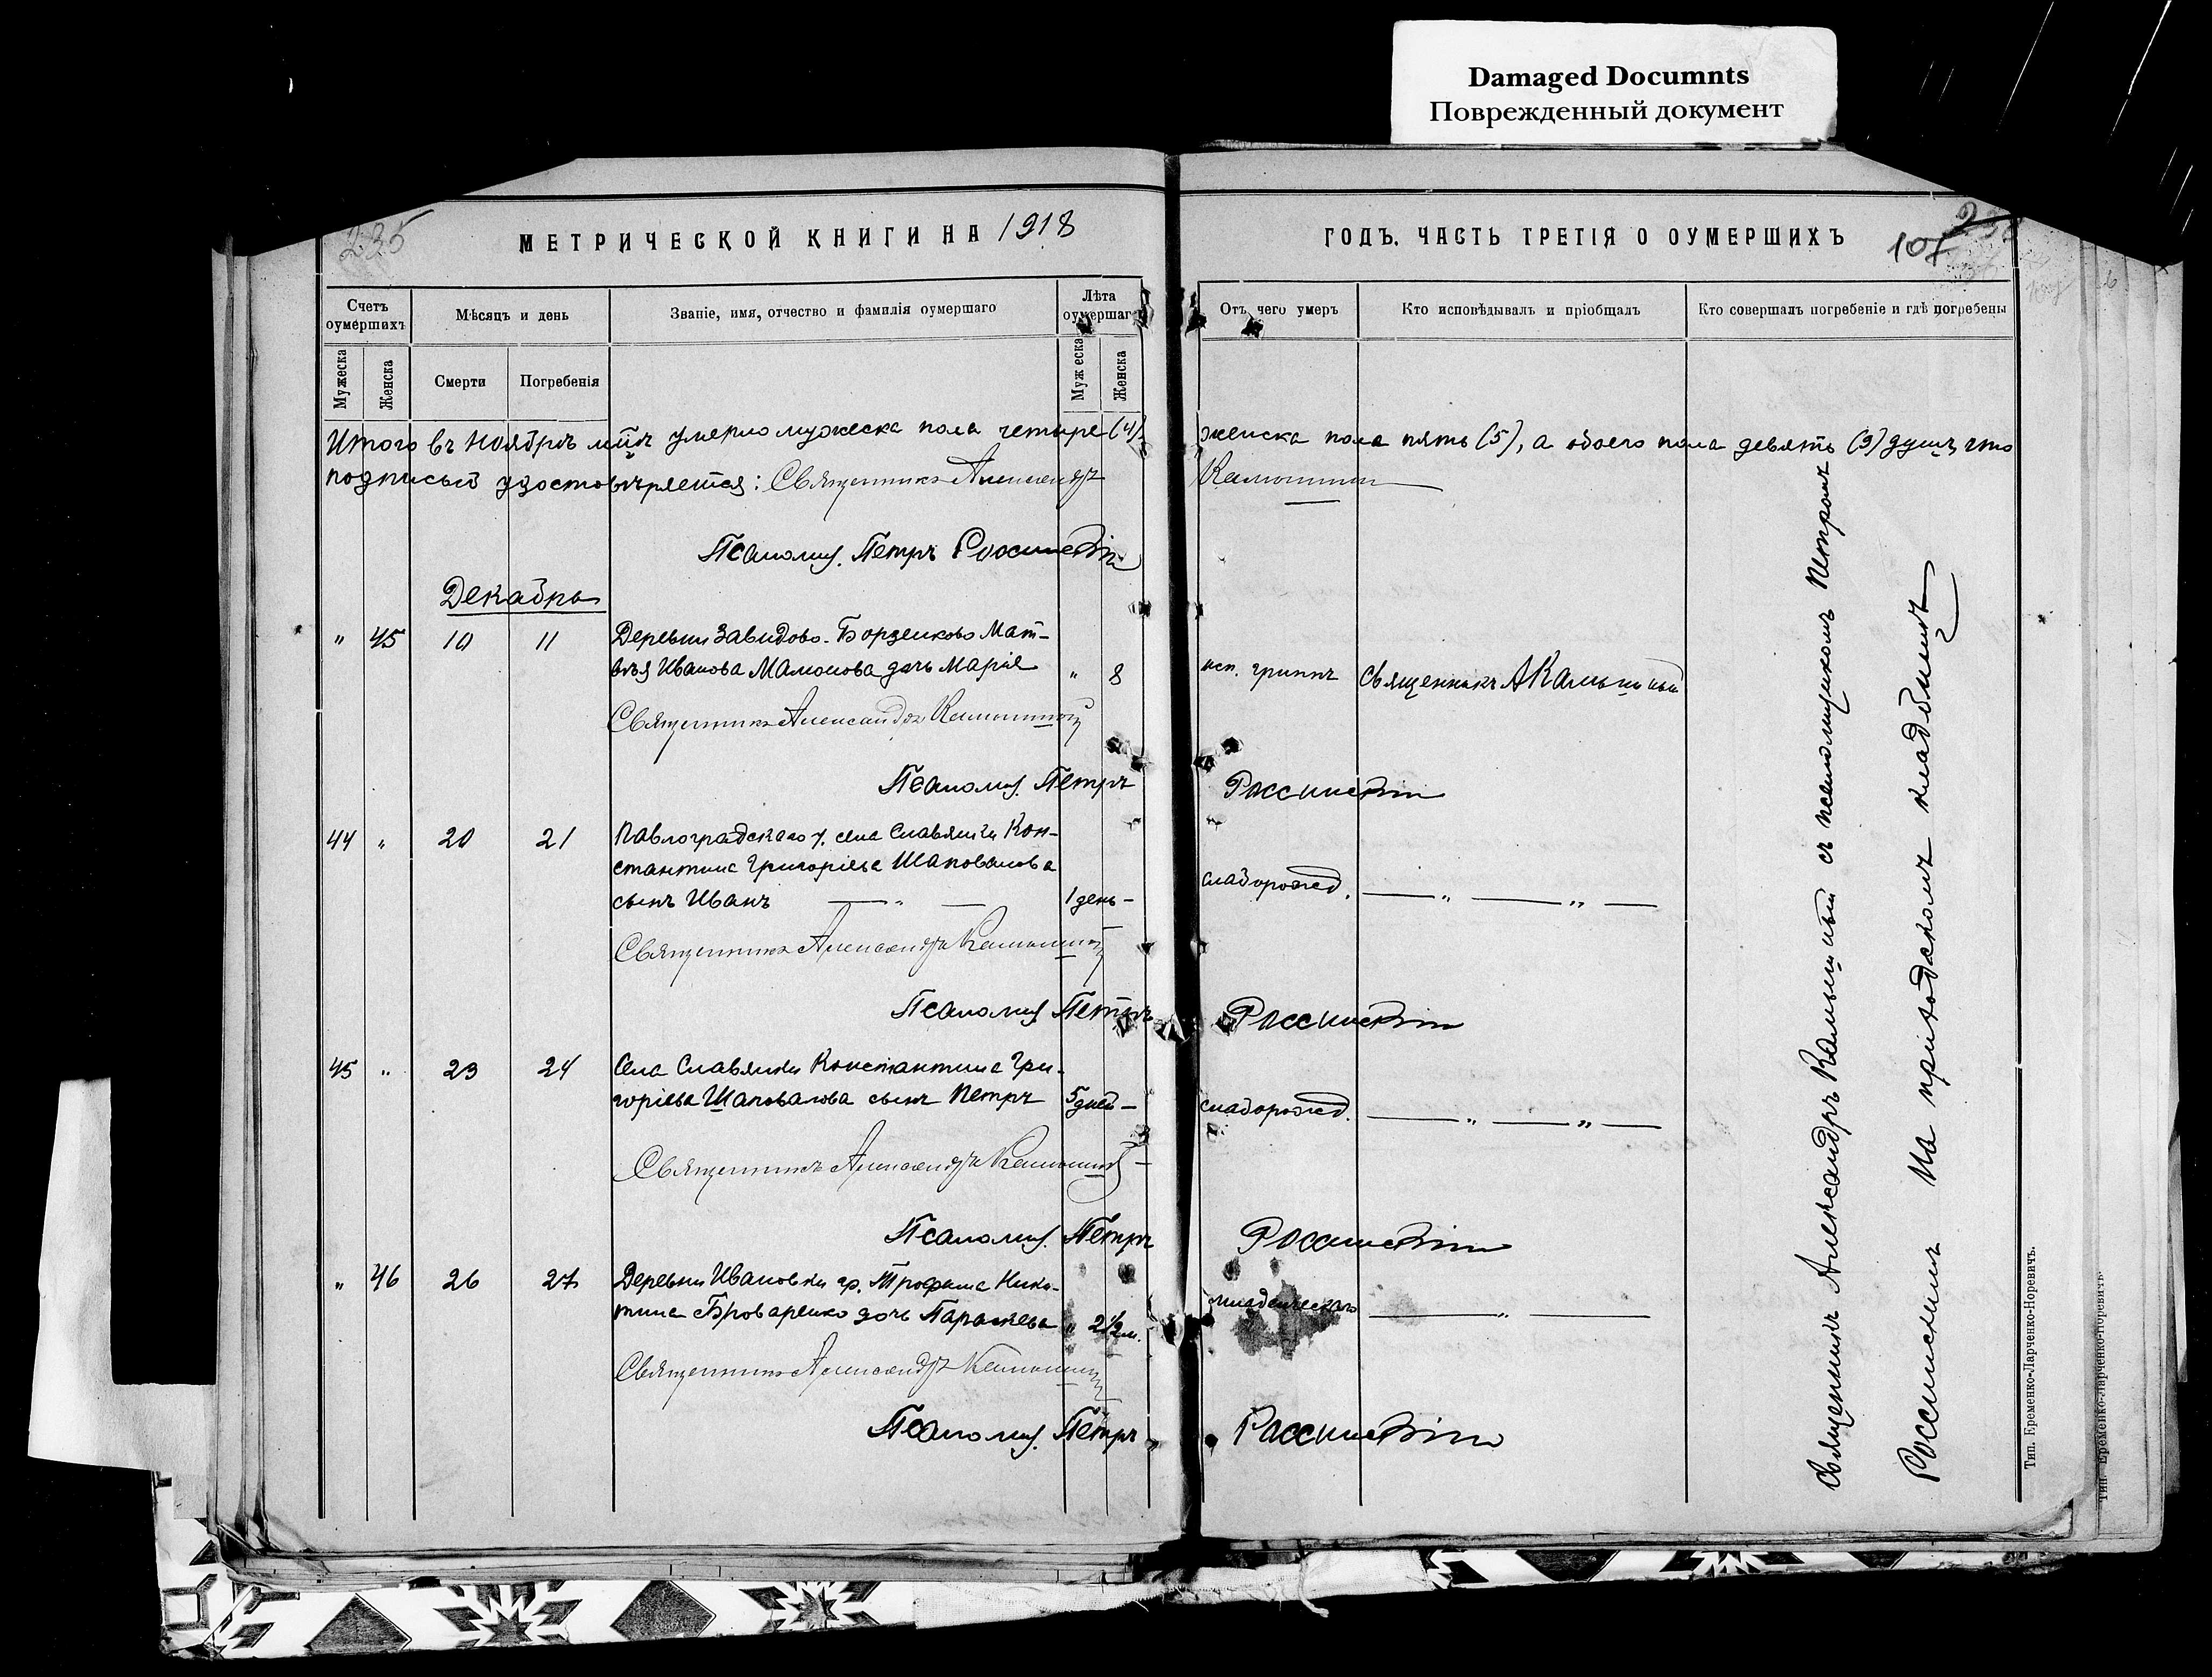 Damaged Documnts
Поврежденный документ
235
МЕТРИЧЕСКОЙ КНИГИ НА 1918
ГОДЪ. ЧАСТЬ ТРЕТІЯ О ОУМЕРШИХЪ
107
Счетъ оумершихъ
Мѣсяцъ и день
Званіе, имя, отчество и фамилія оумершаго
Лѣта оумершаго
Отъ чего умеръ
Кто исповѣдывалъ и пріобщалъ
Кто совершалъ погребеніе и гдѣ погребены
Мужеска
Женска
Смерти
Погребенія
Мужеска
Женска
Итого въ ноябрѣ м-цѣ умерло мужеска пола четыре (4), женска пола пять (5), а обоего пола девять (9) душъ, что
подписью удостовѣряется: Священникъ Александръ
Псаломщ. Петръ
Декабрь
" 45 10 11 Деревни Завидово-Борзенково Мат-
вѣя Иванова Мамонова дочь Марія " 8 исп. гриппъ Священникъ
Священникъ Александръ
Псаломщ. Петръ
44 " 20 21 Павлоградскаго у. села Славянки Кон-
стантина Григоріева Шаповалова
сынъ Иванъ — " — 1 день — слаборожд. — " — " —
Священникъ Александръ
Псаломщ. Петръ
45 " 23 24 Села Славянки Константина Гри-
горіева Шаповалова сынъ Петръ 5 дней — слаборожд. — " — " —
Священникъ Александръ
Псаломщ. Петръ
" 46 26 27 Деревни Ивановки гр. Трофима Ники-
тина Броваренко дочь Параскева " 2½ м. младенческаго — " —
Священникъ Александръ
Псаломщ. Петръ
Священникъ Александръ съ псаломщикомъ Петромъ
На приходскомъ кладбищѣ
Тип. Еременко-Ларченко-Норевичъ.
Тип. Еременко-Ларченко-Норевичъ.